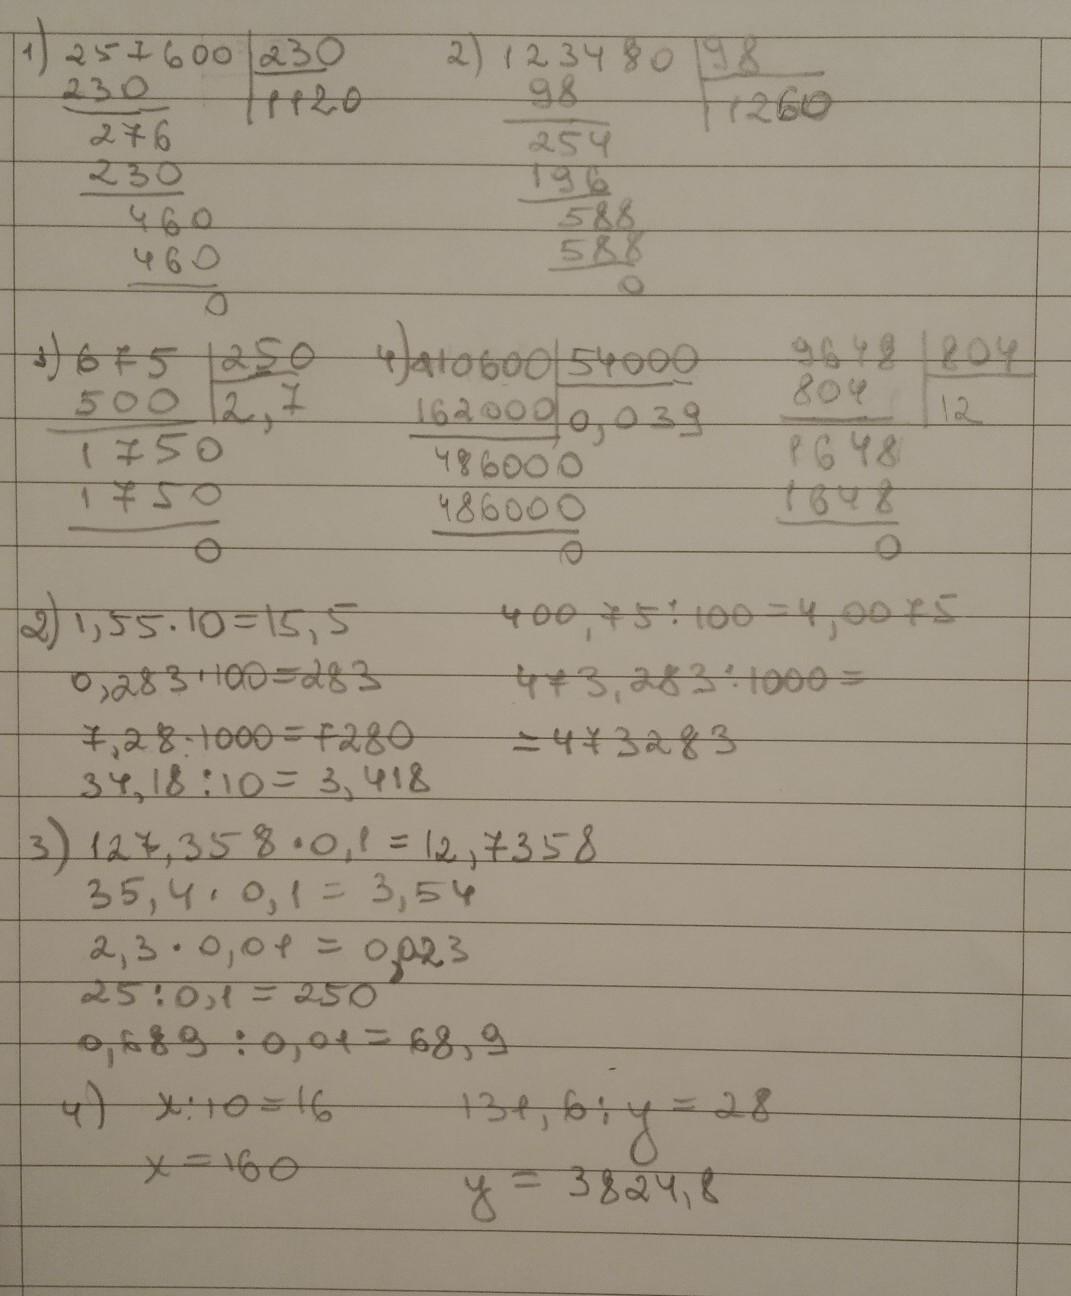 1) 257600 230 2) 123480 98
230 1120 98 1260
276 254
230 196
460 588
460 588
0 0
3) 675 250 4) 210600 54000 9648 804
500 2,7 162000 0,039 804 12
1750 486000 1648
1750 486000 1648
0 0 0
2) 1,55·10=15,5 400,75:100=4,0075
0,283·100=283 473,283:1000=
7,28·1000=7280 =473283
34,18:10=3,418
3) 127,358·0,1=12,7358
35,4·0,1=3,54
2,3·0,01=0,023
25:0,1=250
0,689:0,01=68,9
4) x:10=16 131,6:y=28
x=160 y=3824,8